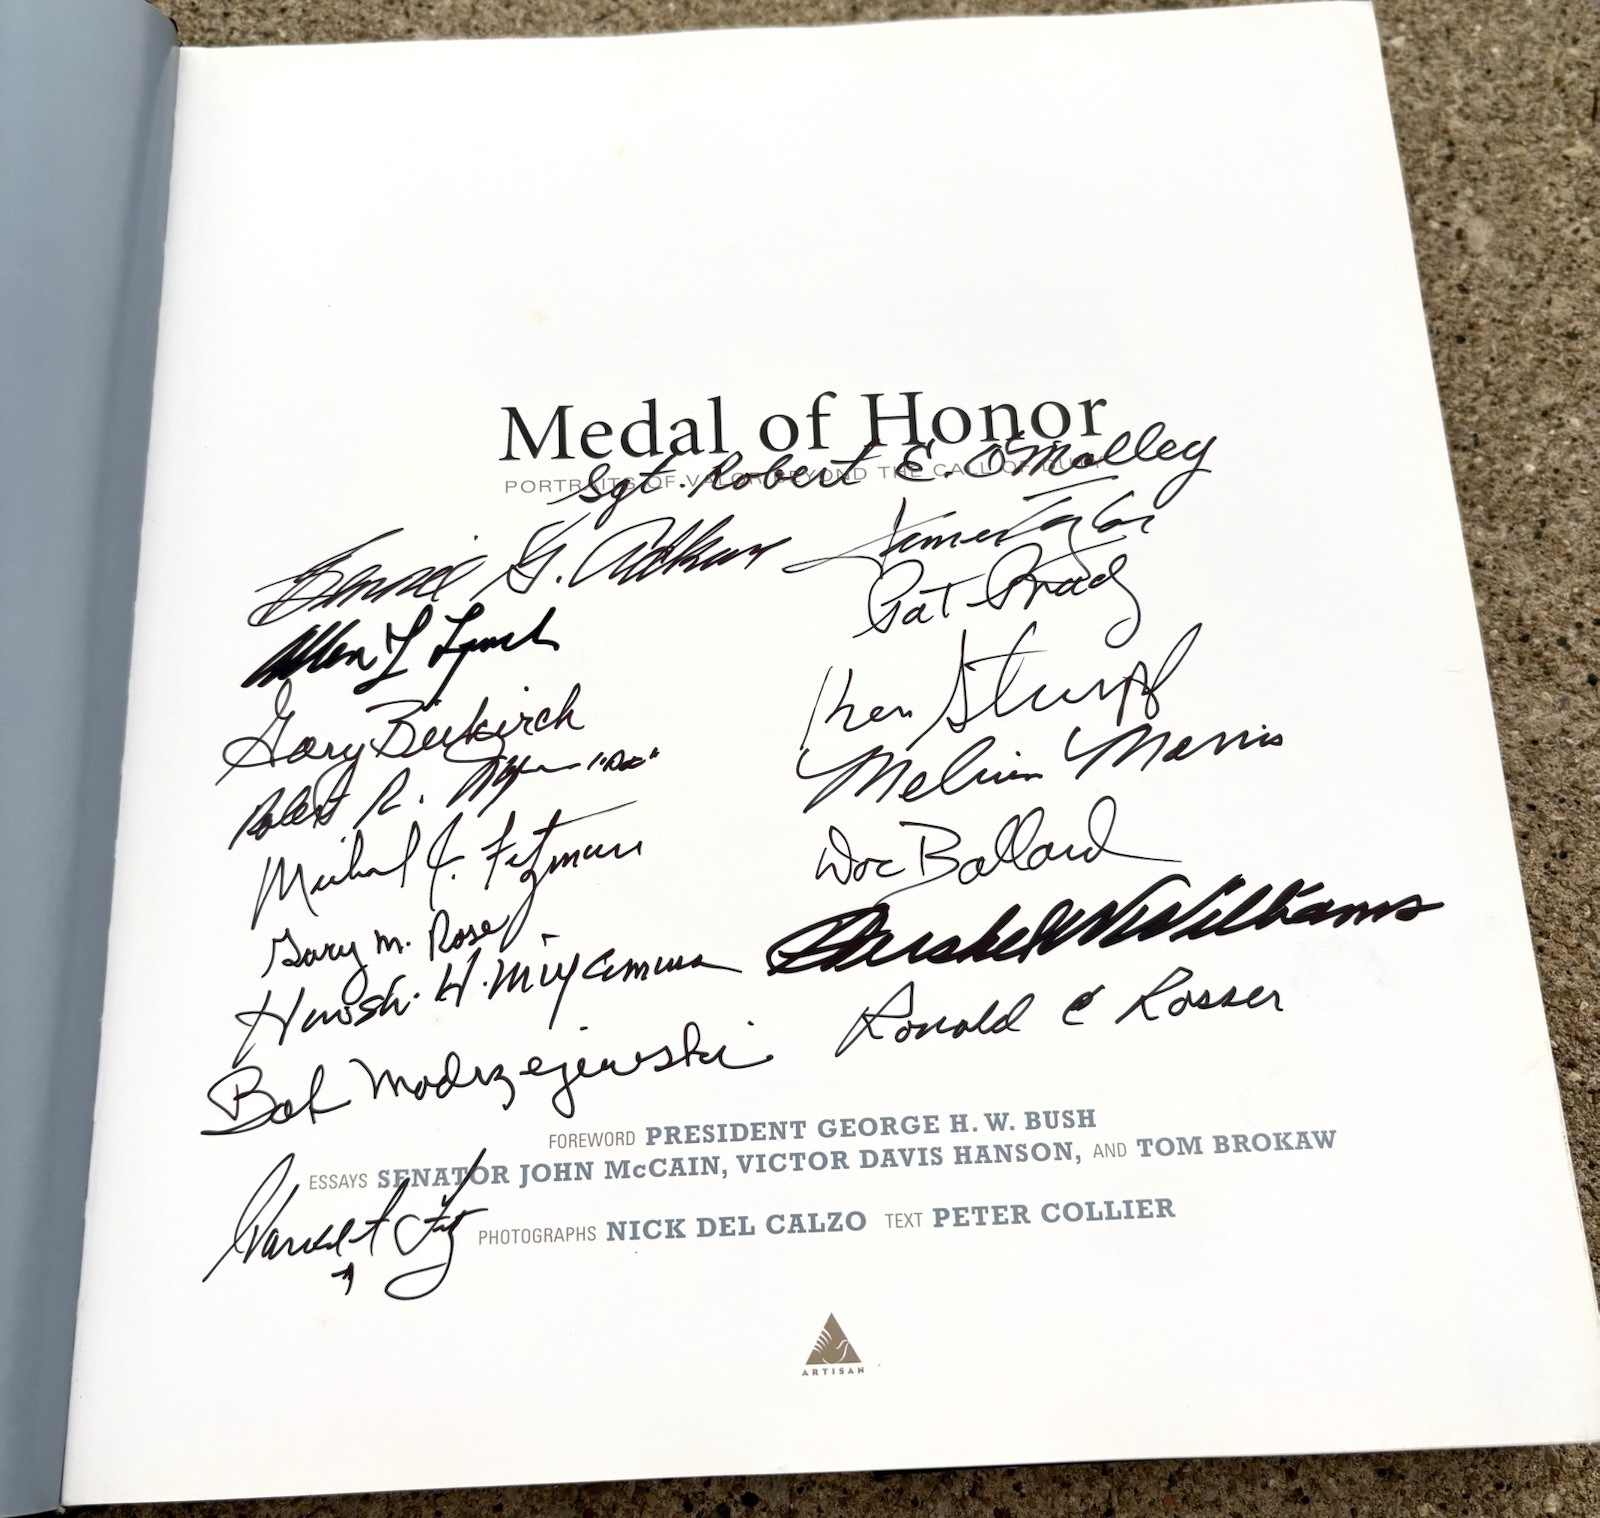 Medal of Honor
PORTRAITS OF VALOR BEYOND THE CALL OF DUTY
Sgt. Robert E. O'Malley
Bennie G. Adkins
Allen J Lynch
Gary Beikirch
Robert R. "Doc"
Michael J. Fitzmaurice
Gary M. Rose
Hiroshi H. Miyamura
Bob Modrzejewski
Harold A Fritz
James Taylor
Pat Brady
Ken Stumpf
Melvin Morris
Doc Ballard
Hershel W Williams
Ronald E Rosser
FOREWORD PRESIDENT GEORGE H. W. BUSH
ESSAYS SENATOR JOHN McCAIN, VICTOR DAVIS HANSON, AND TOM BROKAW
PHOTOGRAPHS NICK DEL CALZO TEXT PETER COLLIER
ARTISAN